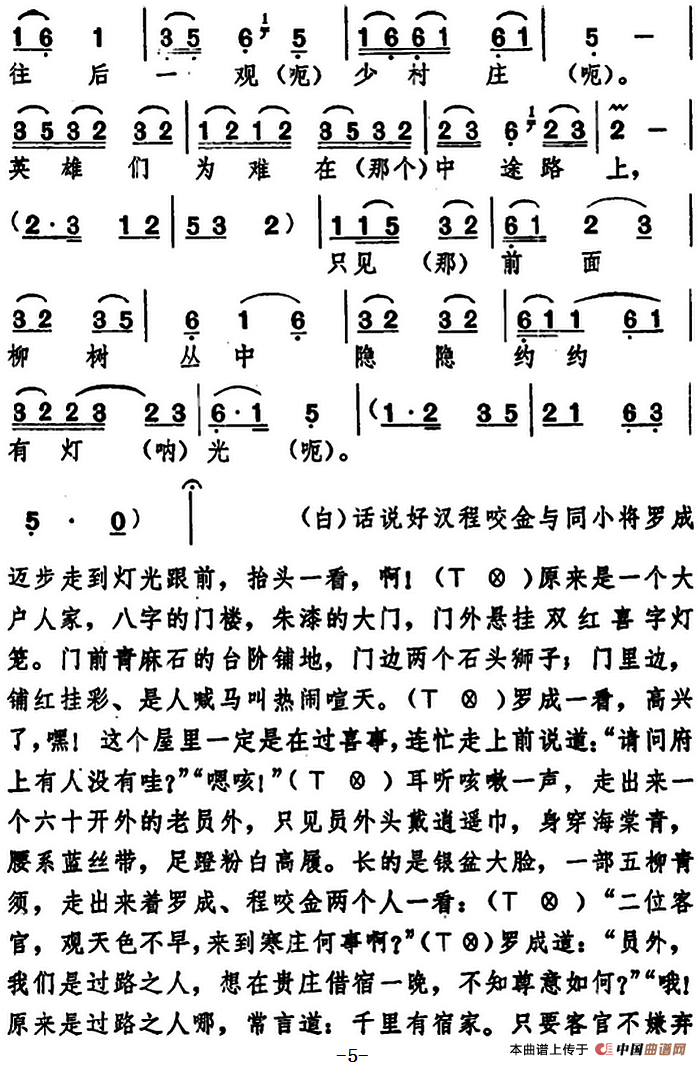 1 6 1 | 3 5 6 1 5 | 1 6 6 1 6 1 | 5 — |
往后一观(呃)少村庄(呃)。
3 5 3 2 3 2 | 1 2 1 2 3 5 3 2 | 2 3 6 1 2 3 | 2 — |
英雄们为难在(那个)中途路上,
(2·3 1 2 | 5 3 2) | 1 1 5 3 2 | 6 1 2 3 |
只见(那)前面
3 2 3 5 | 6 1 6 | 3 2 3 2 | 6 1 1 6 1 |
柳树丛中隐隐约约
3 2 2 3 2 3 | 6·1 5 | (1·2 3 5 | 2 1 6 3 |
有灯(呐)光(呃)。
5 · 0) | (白)话说好汉程咬金与同小将罗成
迈步走到灯光跟前,抬头一看,啊!(T ⊗)原来是一个大
户人家,八字的门楼,朱漆的大门,门外悬挂双红喜字灯
笼。门前青麻石的台阶铺地,门边两个石头狮子;门里边,
铺红挂彩、是人喊马叫热闹喧天。(T ⊗)罗成一看,高兴
了,嘿!这个屋里一定是在过喜事,连忙走上前说道:“请问府
上有人没有哇?”“嗯咳!”(T ⊗)耳听咳嗽一声,走出来一
个六十开外的老员外,只见员外头戴逍遥巾,身穿海棠青,
腰系蓝丝带,足蹬粉白高履。长的是银盆大脸,一部五柳青
须,走出来着罗成、程咬金两个人一看:(T ⊗)“二位客
官,观天色不早,来到寒庄何事啊?”(T⊗)罗成道:“员外,
我们是过路之人,想在贵庄借宿一晚,不知尊意如何?”“哦!
原来是过路之人哪,常言道:千里有宿家。只要客官不嫌弃
-5-
本曲谱上传于 中国曲谱网